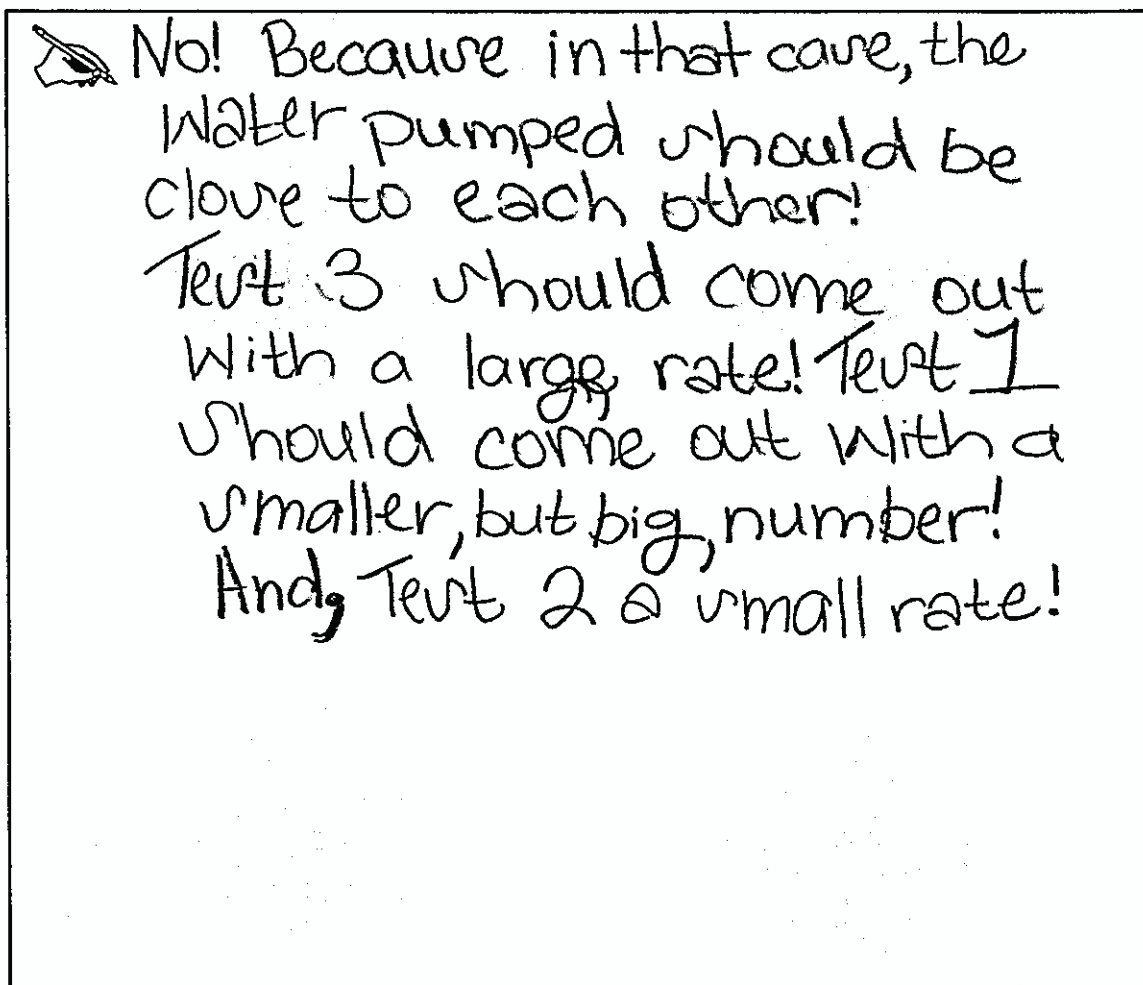 No! Because in that case, the
water pumped should be
close to each other!
Test 3 should come out
with a large, rate! Test 1
should come out with a
smaller, but big, number!
And, Test 2 a small rate!